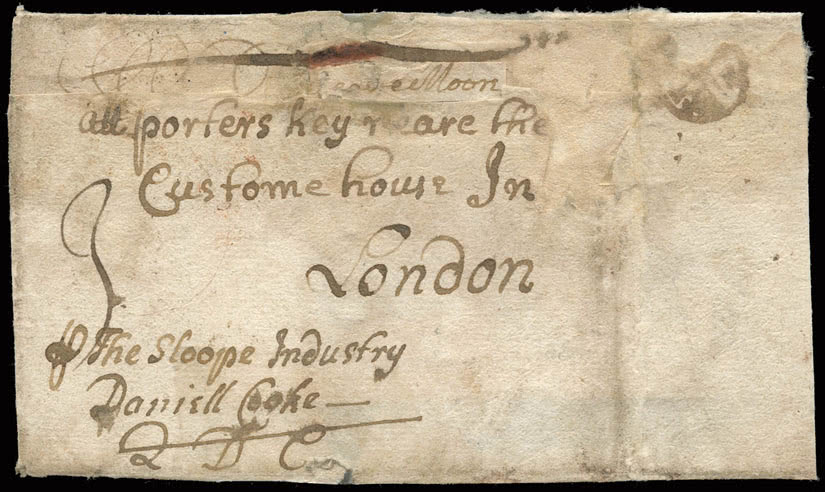 Moon
att porters key neare the
Custome house In
London
3
The Sloope Industry
Daniell Cooke —
Q D C